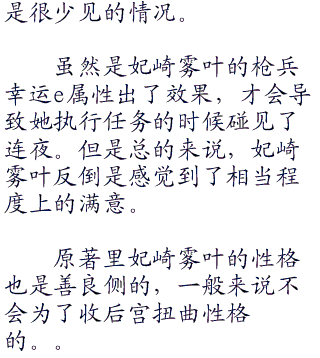 是很少见的情况。
虽然是妃崎雾叶的枪兵
幸运e属性出了效果，才会导
致她执行任务的时候碰见了
连夜。但是总的来说，妃崎
雾叶反倒是感觉到了相当程
度上的满意。
原著里妃崎雾叶的性格
也是善良侧的，一般来说不
会为了收后宫扭曲性格
的。。